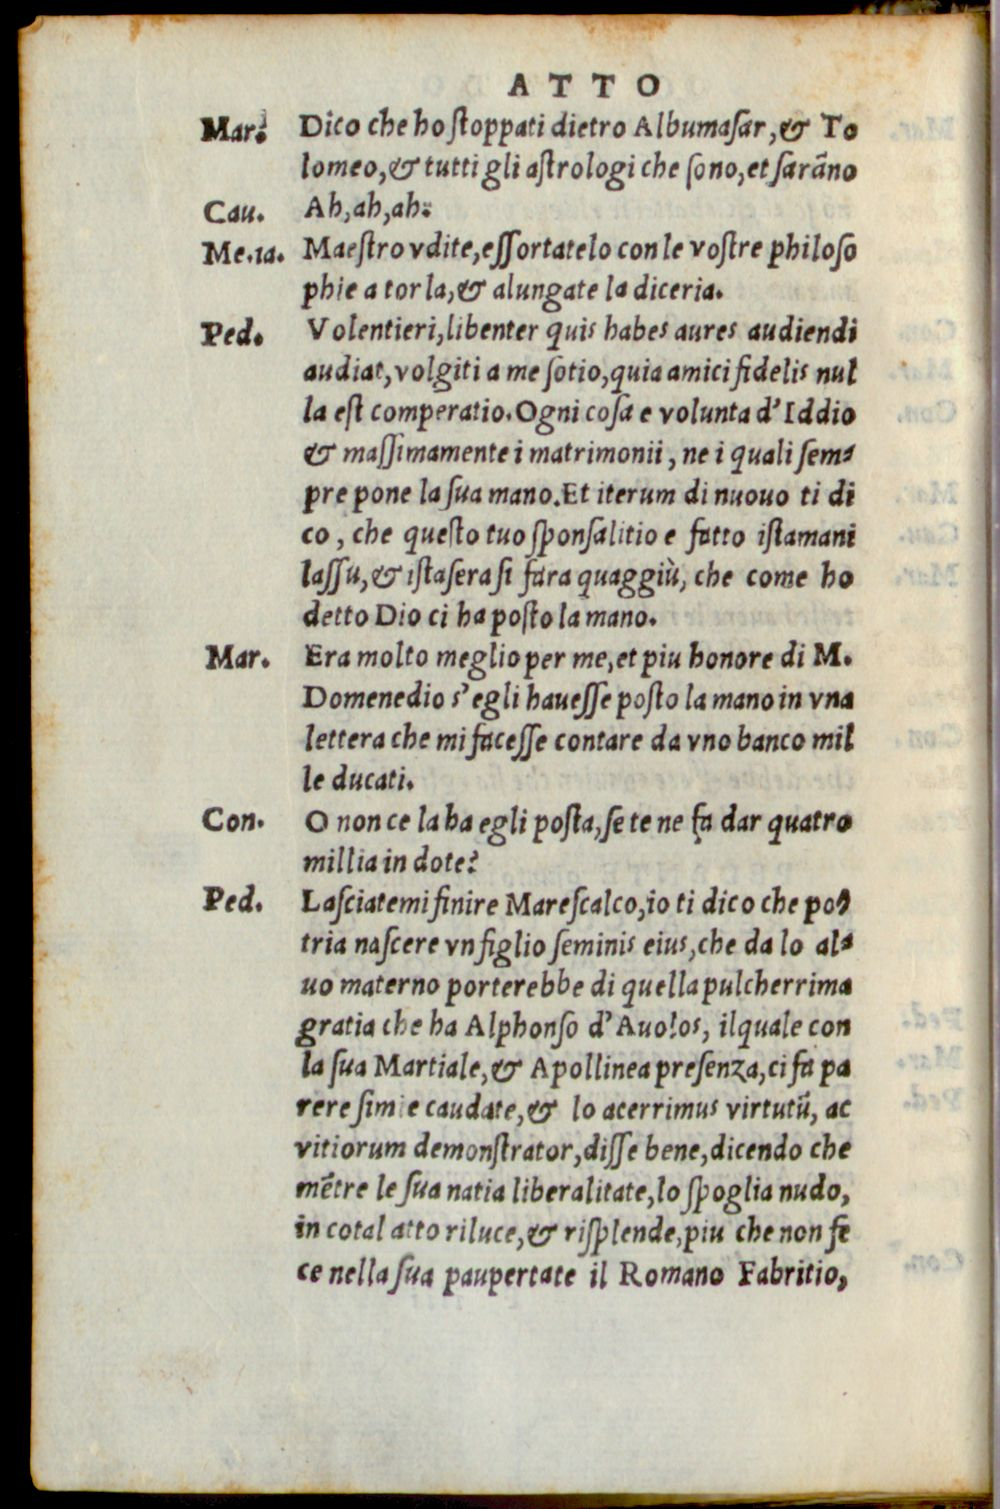 ATTO
Mar. Dico che ho stoppati dietro Albumasar, & To
lomeo, & tutti gli astrologi che sono, et sarāno
Cau. Ah, ah, ah.
Me.ia. Maestro vdite, essortatelo con le vostre philoso
phie a torla, & alungate la diceria.
Ped. Volentieri, libenter quis habes aures audiendi
audiat, volgiti a me sotio, quia amici fidelis nul
la est comperatio. Ogni cosa e volunta d'Iddio
& massimamente i matrimonii, ne i quali sem-
pre pone la sua mano. Et iterum di nuouo ti di
co, che questo tuo sponsalitio e fatto istamani
lassu, & istasera si fara quaggiù, che come ho
detto Dio ci ha posto la mano.
Mar. Era molto meglio per me, et piu honore di M.
Domenedio s'egli hauesse posto la mano in vna
lettera che mi facesse contare da vno banco mil
le ducati.
Con. O non ce la ha egli posta, se te ne fa dar quatro
millia in dote?
Ped. Lasciatemi finire Marescalco, io ti dico che po-
tria nascere vn figlio seminis eius, che da lo al-
uo materno porterebbe di quella pulcherrima
gratia che ha Alphonso d'Auolos, ilquale con
la sua Martiale, & Apollinea presenza, ci fa pa
rere simie caudate, & lo acerrimus virtutū, ac
vitiorum demonstrator, disse bene, dicendo che
mētre le sua natia liberalitate, lo spoglia nudo,
in cotal atto riluce, & risplende, piu che non fe
ce nella sua paupertate il Romano Fabritio,